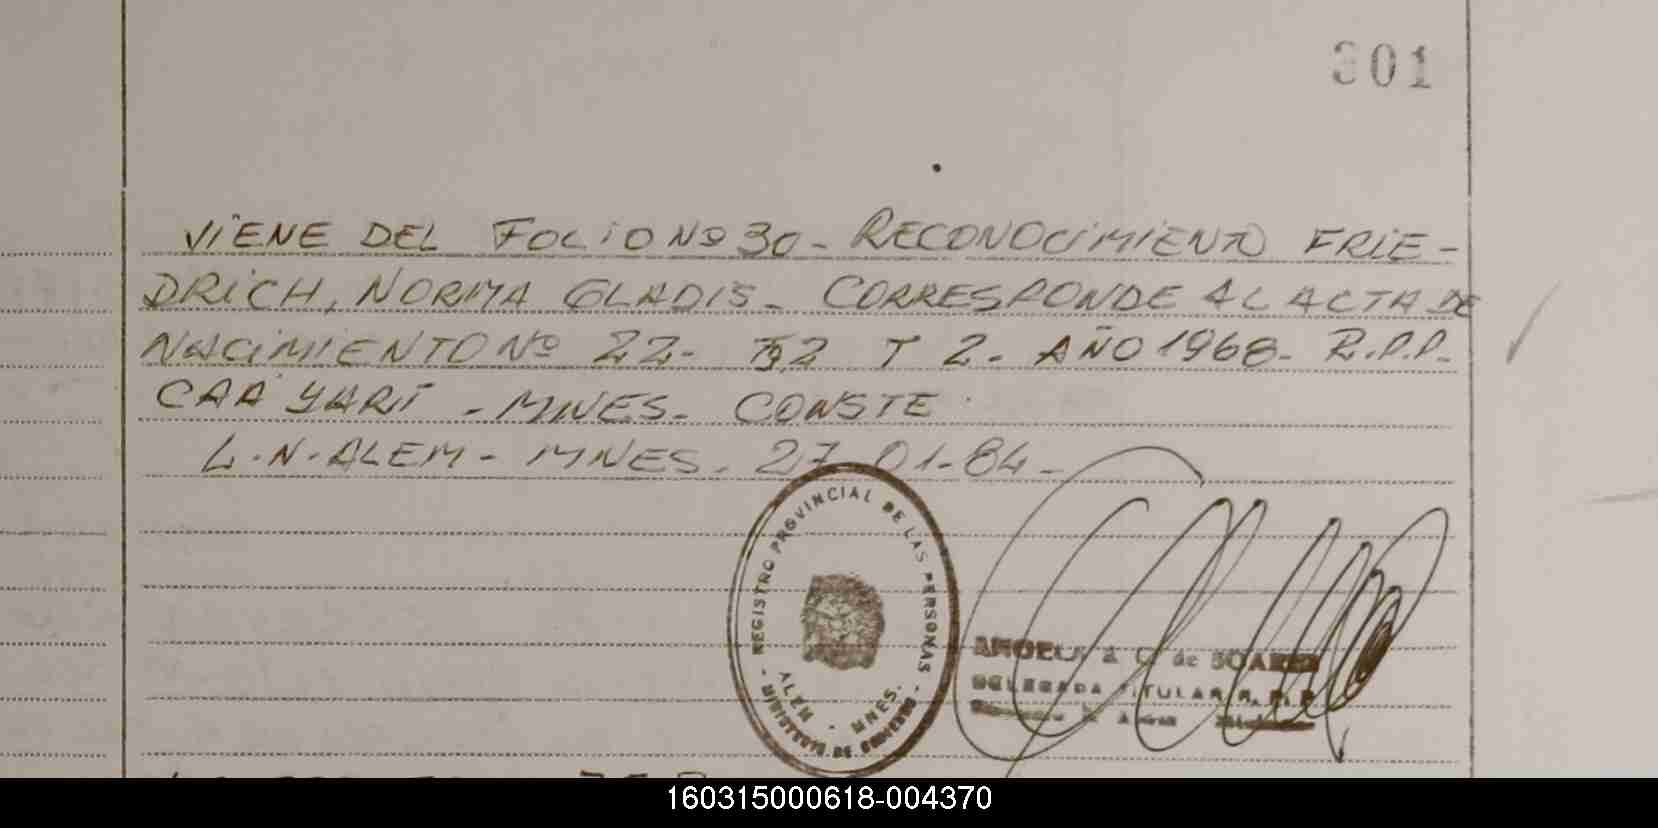 301
VIENE DEL FOLIO Nº 30- RECONOCIMIENTO FRIE-
DRICH, NORMA GLADIS- CORRESPONDE AL ACTA DE
NACIMIENTO Nº 22- 2 T 2- AÑO 1968- R.P.P.
CAA YARI - MNES- CONSTE
L.N. ALEM - MNES. 27 01-84-
REGISTRO PROVINCIAL DE LAS PERSONAS
ALEM - MNES.
MINISTERIO DE GOBIERNO
C. de SOAREZ
DELEGADA TITULAR R. P. P.
160315000618-004370